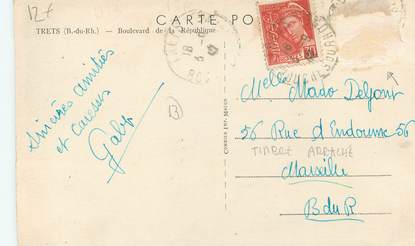 12€
CARTE PO
TRETS (B.-du-Rh.) — Boulevard de la République
Sincères amitiés
et caresses
Gaby
13
Melle Mado Deljont
56 Rue d'Endoume 56
TIMBRE ARRACHÉ
Marseille
B du R